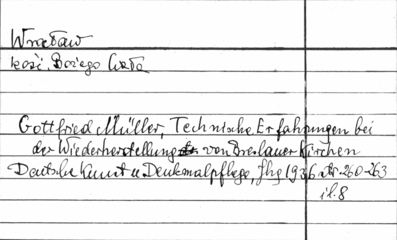 Wrocław
kość. Bożego Ciała
Gottfried Müller, Technische Erfahrungen bei
der Wiederherstellung von Breslauer Kirchen
Deutsche Kunst u. Denkmalpflege, Jhg 1936 str. 260-263
il. 8